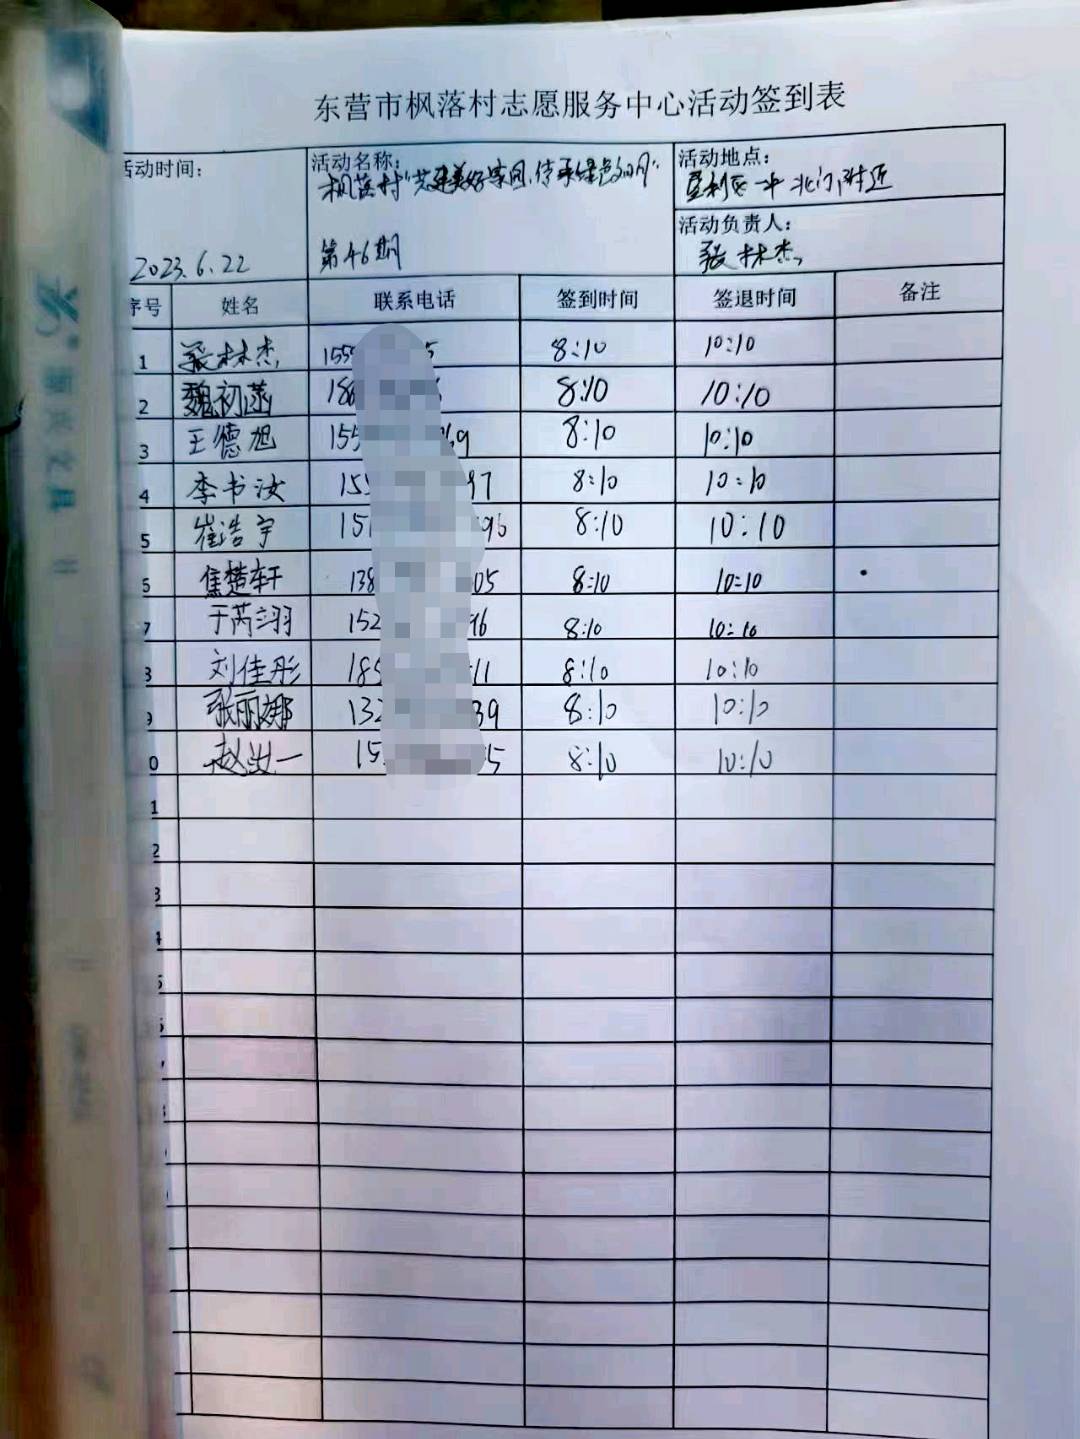 东营市枫落村志愿服务中心活动签到表
活动时间: 活动名称: 活动地点:
枫落村"共建美好家园,传承绿色文明" 垦利区一中北门附近
活动负责人:
2023.6.22 第46期 张林杰
序号 姓名 联系电话 签到时间 签退时间 备注
1 张林杰 155 5 8:10 10:10
2 魏初菡 186 6 8:10 10:10
3 王德旭 155 69 8:10 10:10
4 李书汝 155 97 8:10 10:10
5 崔浩宇 151 96 8:10 10:10
6 焦楚轩 138 05 8:10 10:10
7 于芮翊 152 96 8:10 10:10
8 刘佳彤 185 11 8:10 10:10
9 张丽娜 132 39 8:10 10:10
0 赵 一 15 5 8:10 10:10
1
2
3
4
5
6